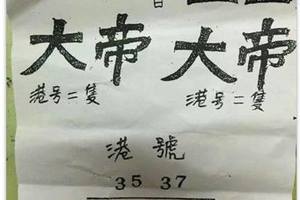 日
大帝 大帝
港号二隻 港号二隻
港號
35 37